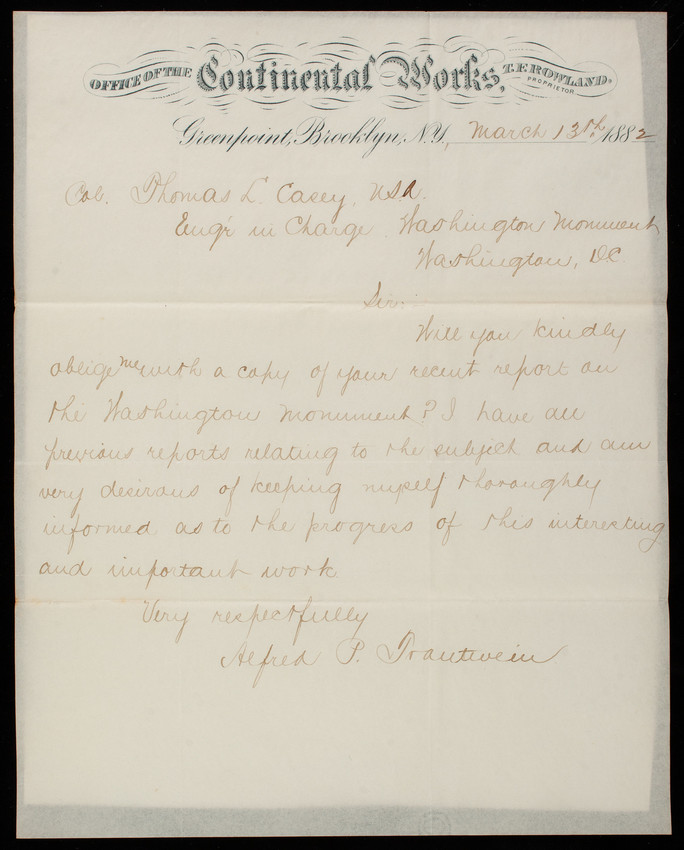 OFFICE OF THE Continental Works, T.F. ROWLAND.
PROPRIETOR
Greenpoint, Brooklyn, N.Y., March 13th, 1882
Col. Thomas L. Casey, U.S.A.
Eng'r in Charge Washington Monument
Washington, D.C.
Sir:
Will you kindly
oblige me with a copy of your recent report on
the Washington Monument? I have all
previous reports relating to the subject and am
very desirous of keeping myself thoroughly
informed as to the progress of this interesting
and important work
Very respectfully
Alfred P. Trautwein